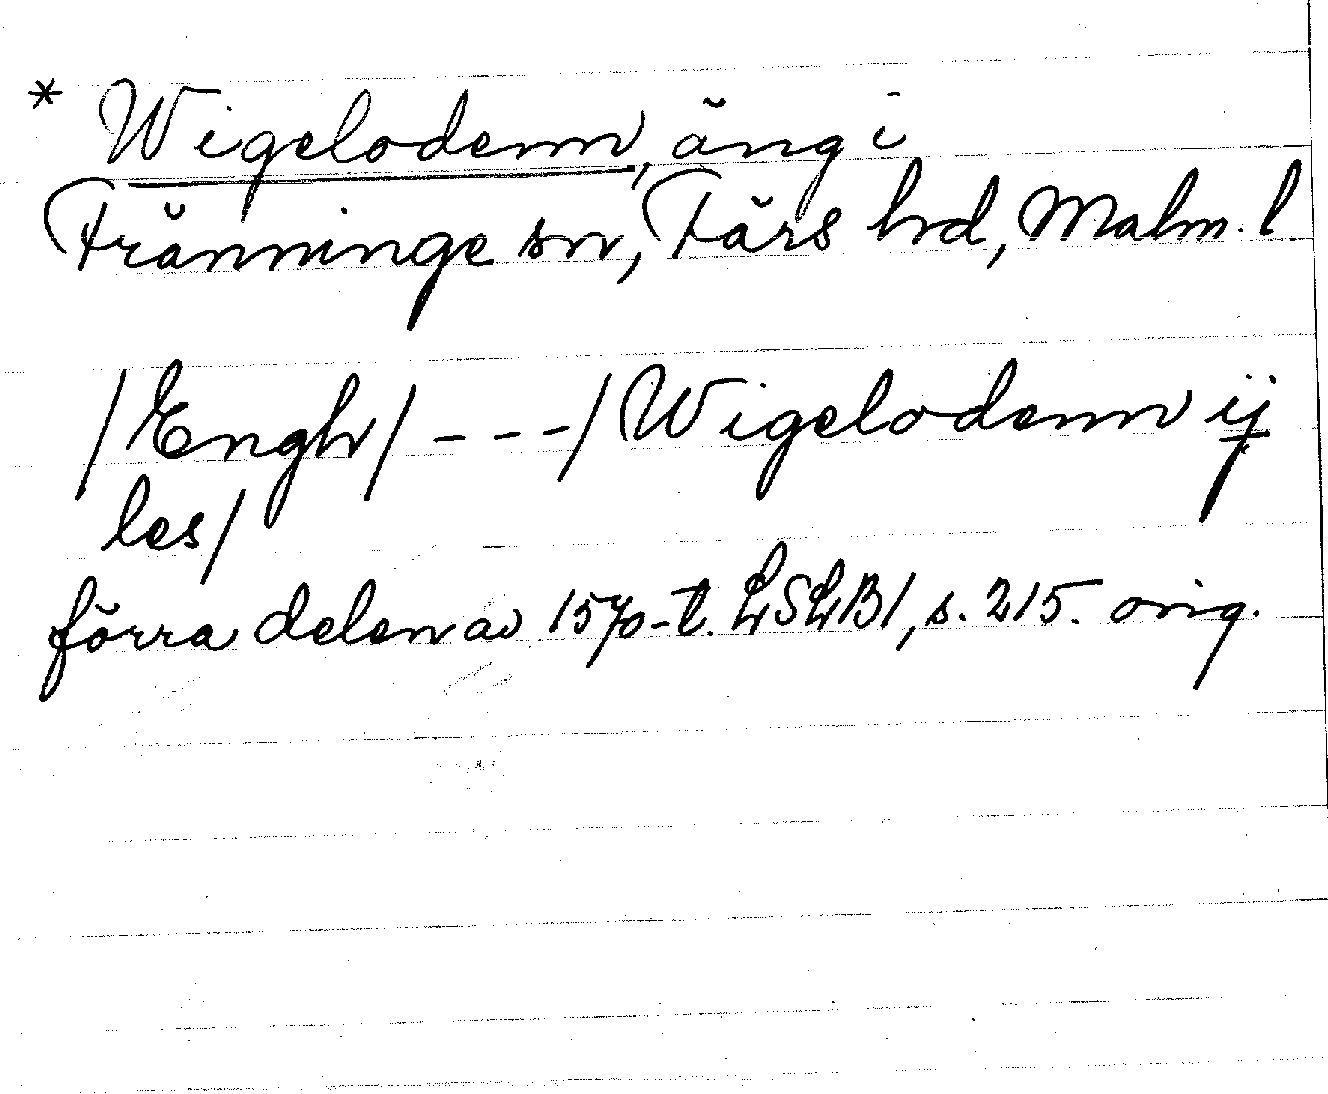 * Wigelodenn, äng i
Fränninge sn, Färs hrd, Malm. l
/Engh/ - - -/Wigelodenn ij
les/
förra delen av 1570-t. LSLB1, s. 215. orig.